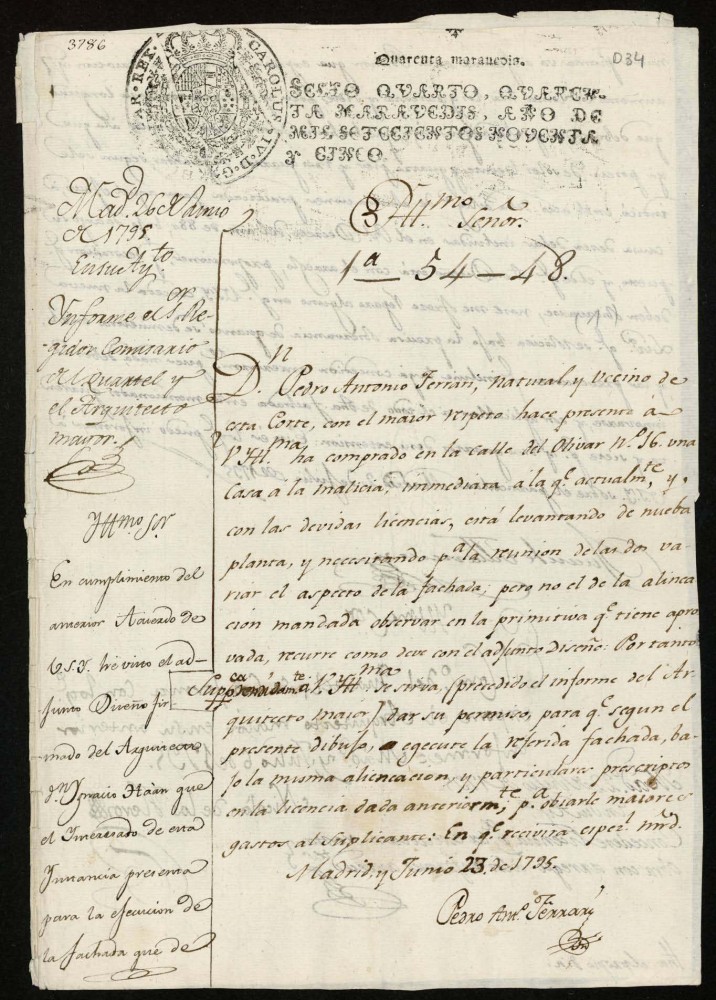 3786
034
CAROLUS IV D. G.
Quarenta maravedis.
SELLO QVARTO, QVAREN-
TA MARAVEDIS, AÑO DE
MIL SETECIENTOS NOVENTA
Y CINCO.
Mad.d 26 de Junio
de 1795.
En su Ay.to
Informe el S.r Re-
gidor Comisario
del Quartel y
el Arquitecto
mayor.
Yllmo Sor
En cumplimiento del
anterior Acuerdo de
V.S.Y. he visto el ad-
junto Diseño fir
mado del Arquitecto
d.n Ygnacio Haan que
el Interesado de esta
Instancia presenta
para la ejecucion de
la fachada que de
Yll.mo Señor.
1a 54-48.
D.n Pedro Antonio Ferrari, natural, y vecino de
esta Corte, con el maior respeto hace presente à
V. Yll.ma ha comprado en la Calle del Olivar N.o 16. una
Casa à la malicia, immediata à la q.e actualm.te, y
con las devidas licencias, está levantando de nueba
planta, y necesitando p.a la reunion de las dos va-
riar el aspecto de la fachada; pero no el de la alinea
cion mandada observar en la primitiva q.e tiene apro
vada, recurre como deve con el adjunto diseño: Por tanto
Supp.ca rendidam.te a V. Yll.ma se sirva, (precedido el informe del Ar
quitecto maior) dar su permiso, para q.e segun el
presente dibujo, egecute la referida fachada, ba-
jo la misma alineacion, y particulares prescriptos
en la licencia dada anteriorm.te, p.a obiarle maiores
gastos al Suplicante: En q.e recivirá espe.l mrd.
Madrid, y Junio 23 de 1795.
Pedro Ant.o Ferrari